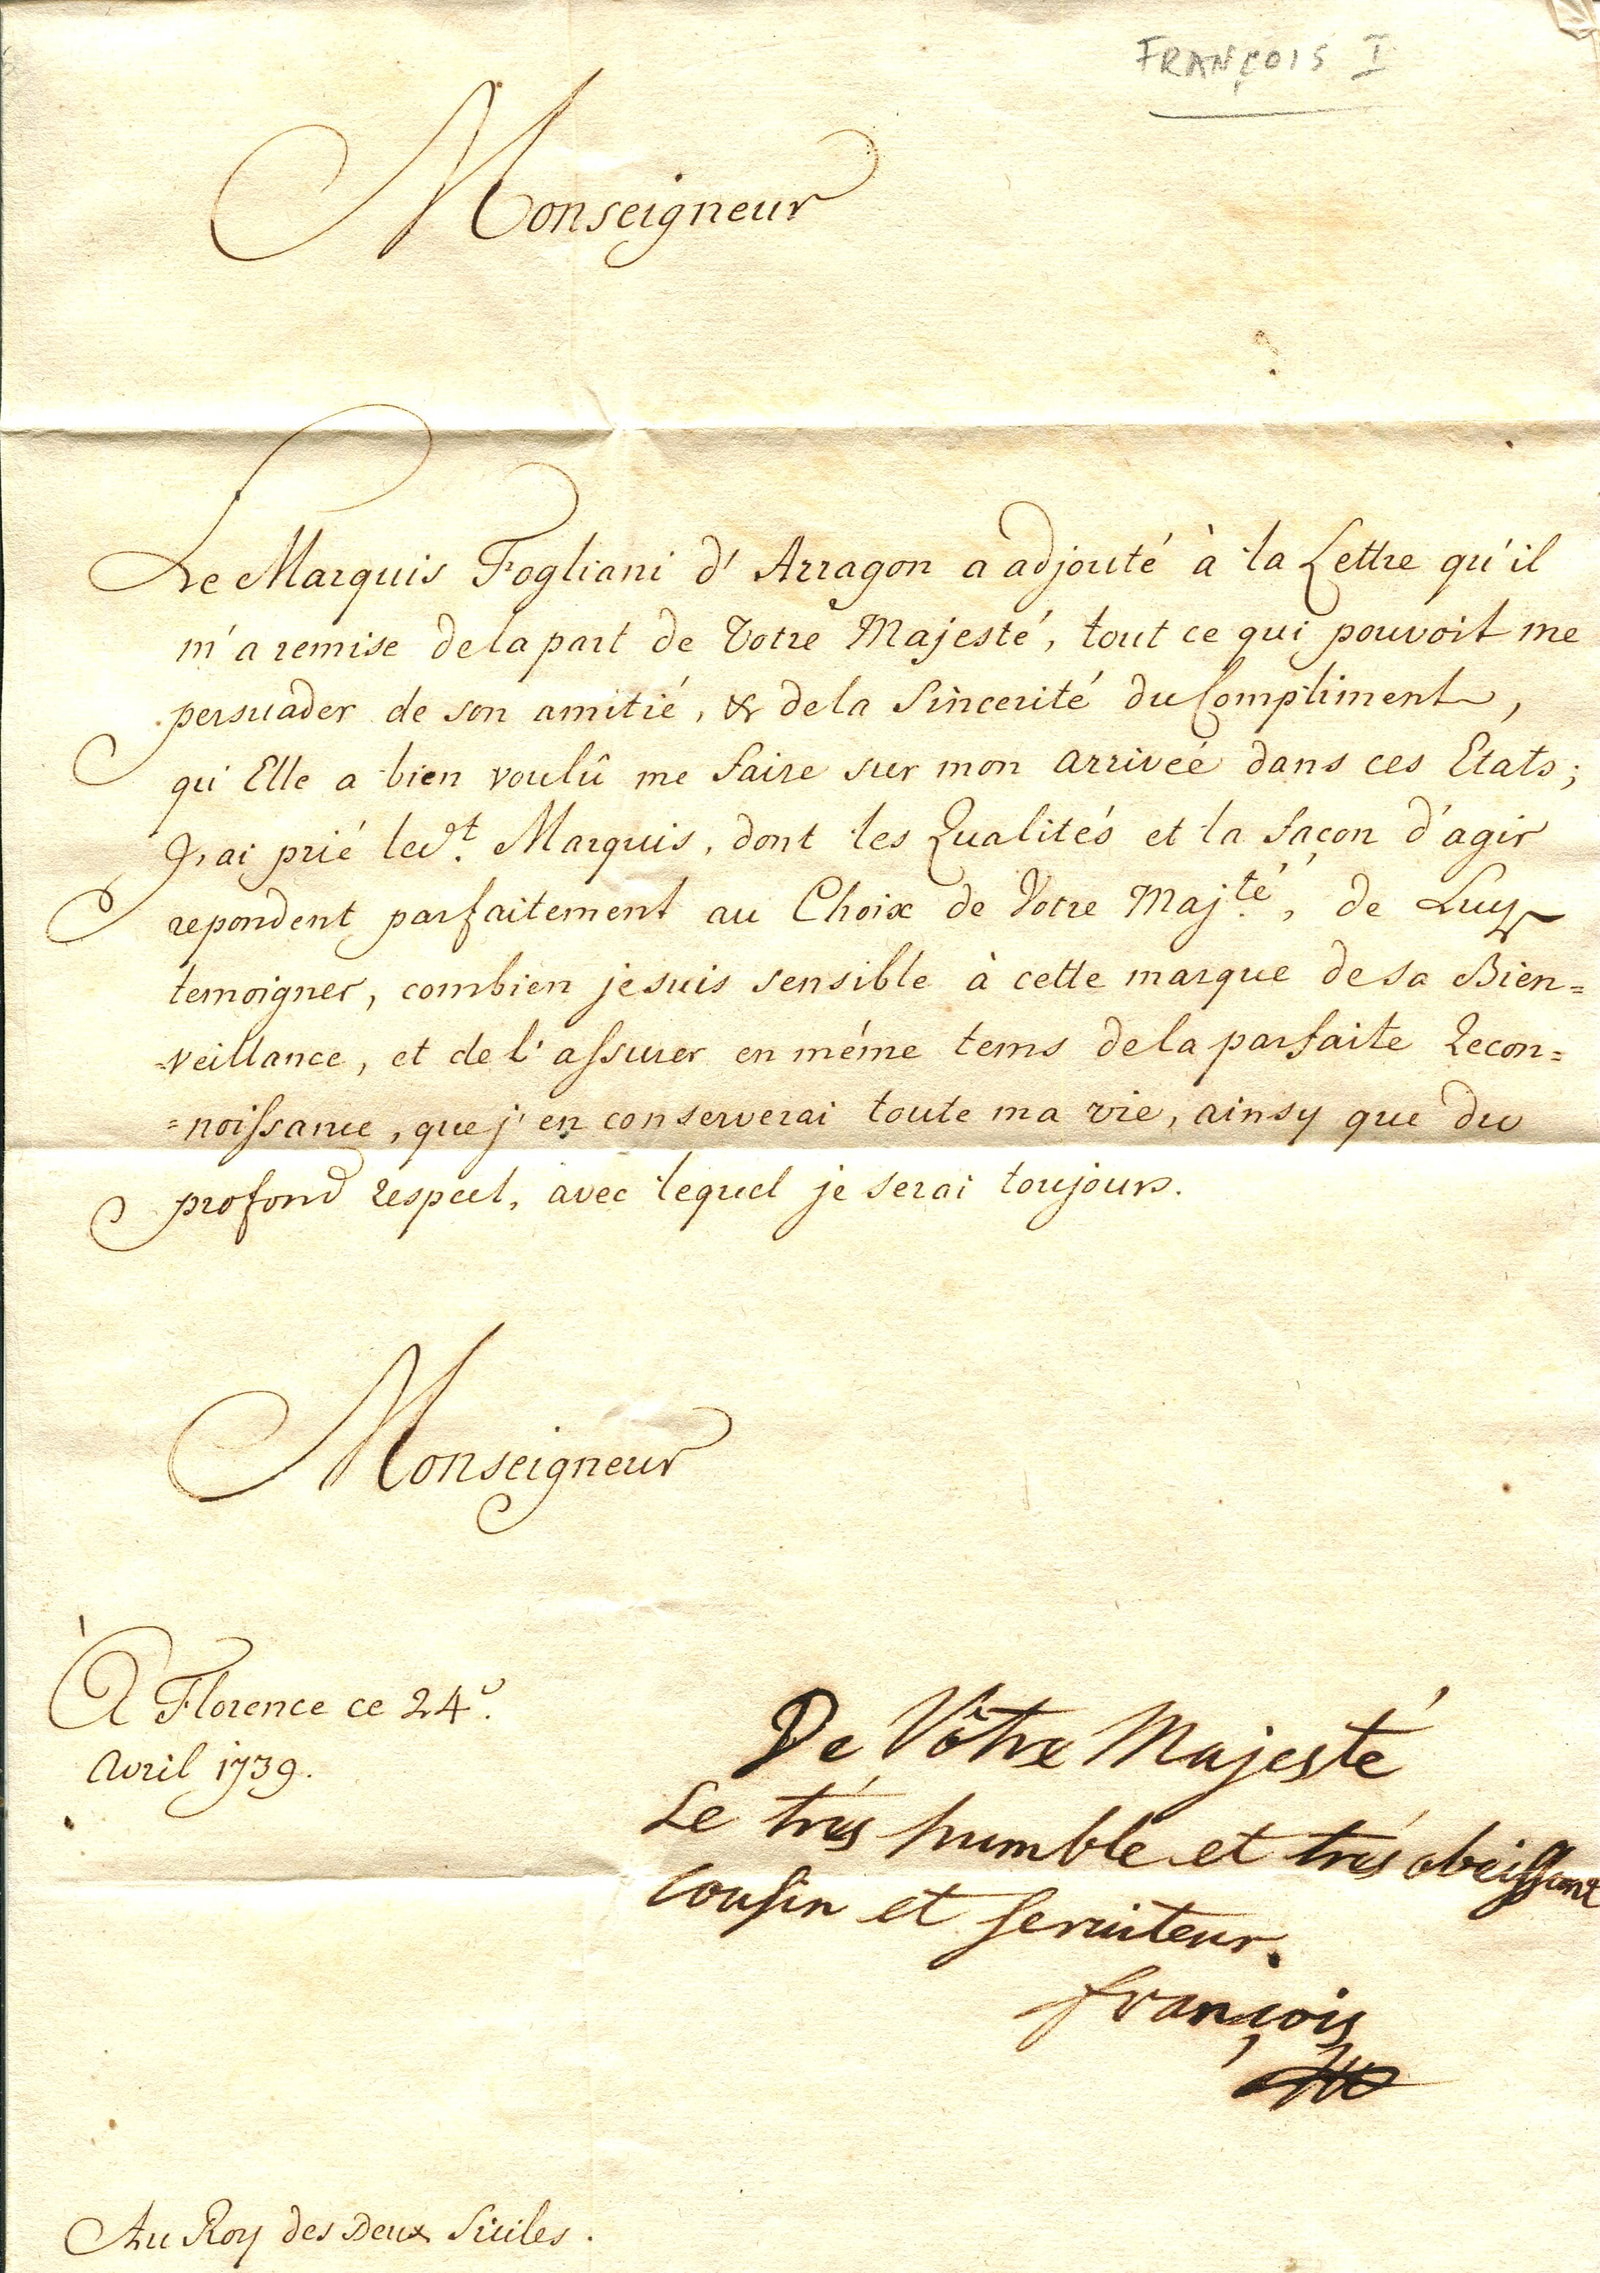 FRANÇOIS I
Monseigneur
Le Marquis Fogliani d'Arragon a adjouté à la Lettre qu'il
m'a remise de la part de Votre Majesté, tout ce qui pouvoit me
persuader de son amitié, & de la Sincerité du Compliment,
qui Elle a bien voulû me faire sur mon arriveé dans ces Etats;
J'ai prié led.t Marquis, dont les Qualités et la façon d'agir
repondent parfaitement au Choix de Votre Maj.té, de Luy
temoigner, combien je suis sensible à cette marque de sa Bien=
=veillance, et de l'assurer en méme tems de la parfaite Recon=
=noissance, que j'en conserverai toute ma vie, ainsy que du
profond respect, avec lequel je serai toujours.
Monseigneur
À Florence ce 24.e
Avril 1739.
De Vôtre Majesté
Le trés humble et trés obeissant
Cousin et serviteur.
françois
Au Roy des Deux Siciles.